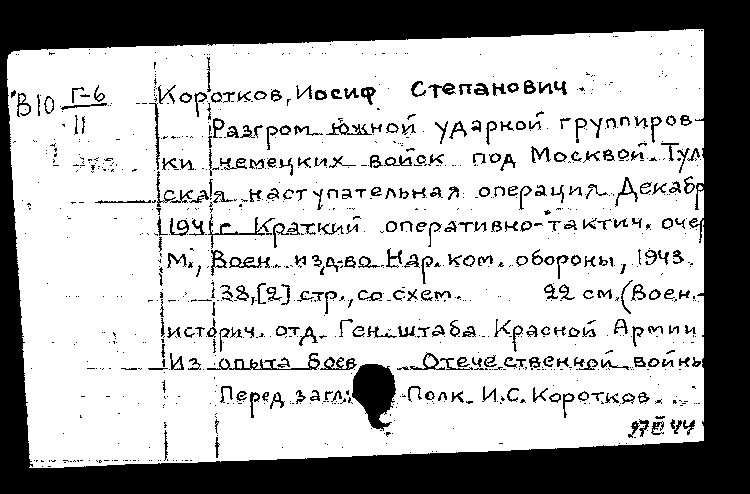 В10 Г-6 Коротков, Иосиф Степанович.
11 Разгром южной ударной группиров-
ки немецких войск под Москвой. Тул
ская наступательная операция Декабр
1941 г. Краткий оперативно-тактич. очер
М., Воен. изд-во Нар. ком. обороны, 1943.
38,[2] стр., со схем. 22 см. (Воен.-
историч. отд. Ген. штаба Красной Армии.
Из опыта боев Отечественной войны
Перед загл.: Полк. И.С. Коротков.
27 III 44